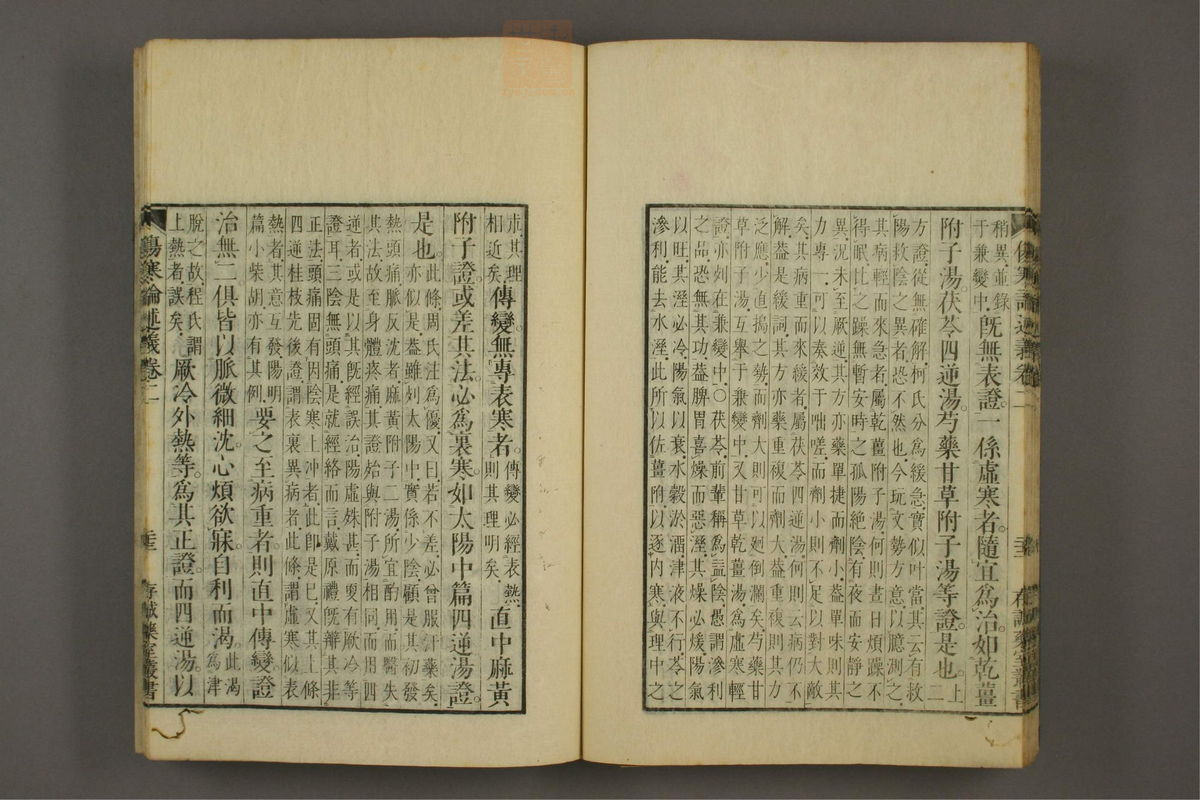 稍異並錄
于兼變中既無表證一係虛寒者隨宜爲治如乾薑
附子湯茯苓四逆湯芍藥甘草附子湯等證是也上二
方證從無確解柯氏分爲緩急實似叶當其云有救
陽救陰之異者恐不然也今玩文勢方意以臆測之
其病輕而來急者屬乾薑附子湯何則晝日煩躁不
得眠比之躁無暫安時之孤陽絶陰有夜而安靜之
異況未至厥逆其方亦藥單捷而劑小葢單味則其
力專一可以奏效于咄嗟而劑小則不足以對大敵
矣其病重而來緩者屬茯苓四逆湯何則云病仍不
解葢是緩詞其方亦藥重複而劑大葢重複則其方
泛應少直搗之勢而劑大則可以廻倒瀾矣芍藥甘
草附子湯互舉于兼變中又甘草乾薑湯爲虛寒輕
證亦列在兼變中○茯苓前輩稱爲益陰愚謂滲利
之品恐無其功葢脾胃喜燥而惡溼其燥必煖陽氣
以旺其溼必冷陽氣以衰水穀淤溜津液不行苓之
滲利能去水溼此所以佐薑附以逐内寒與理中之
朮其理
相近矣傳變無專表寒者傳變必經表熱則其理明矣直中麻黃
附子證或差其法必爲裏寒如太陽中篇四逆湯證
是也此條周氏注爲優又曰若不差必曾服汗藥矣亦似是葢雖列太陽中實係少陰顧是其初發
熱頭痛脈反沈者麻黃附子二湯所宜酌用而醫失
其法故至身體疼痛其證始與附子湯相同而用四
逆者或是以其既經誤治陽虛殊甚而更有厥冷等
證耳三陰無頭痛是就經絡而言戴原禮既辯其非
正法頭痛固有因陰寒上冲者此即是已又其上條
四逆桂枝先後證謂表裏異病者此條謂虛寒似表
熱者其意互發陽明
篇小柴胡亦有其例要之至病重者則直中傳變證
治無二俱皆以脈微細沈心煩欲寐自利而渴此渴爲津
脫之故程氏謂
上熱者誤矣厥冷外熱等爲其正證而四逆湯以
傷寒論述義卷二
存誠藥室叢書